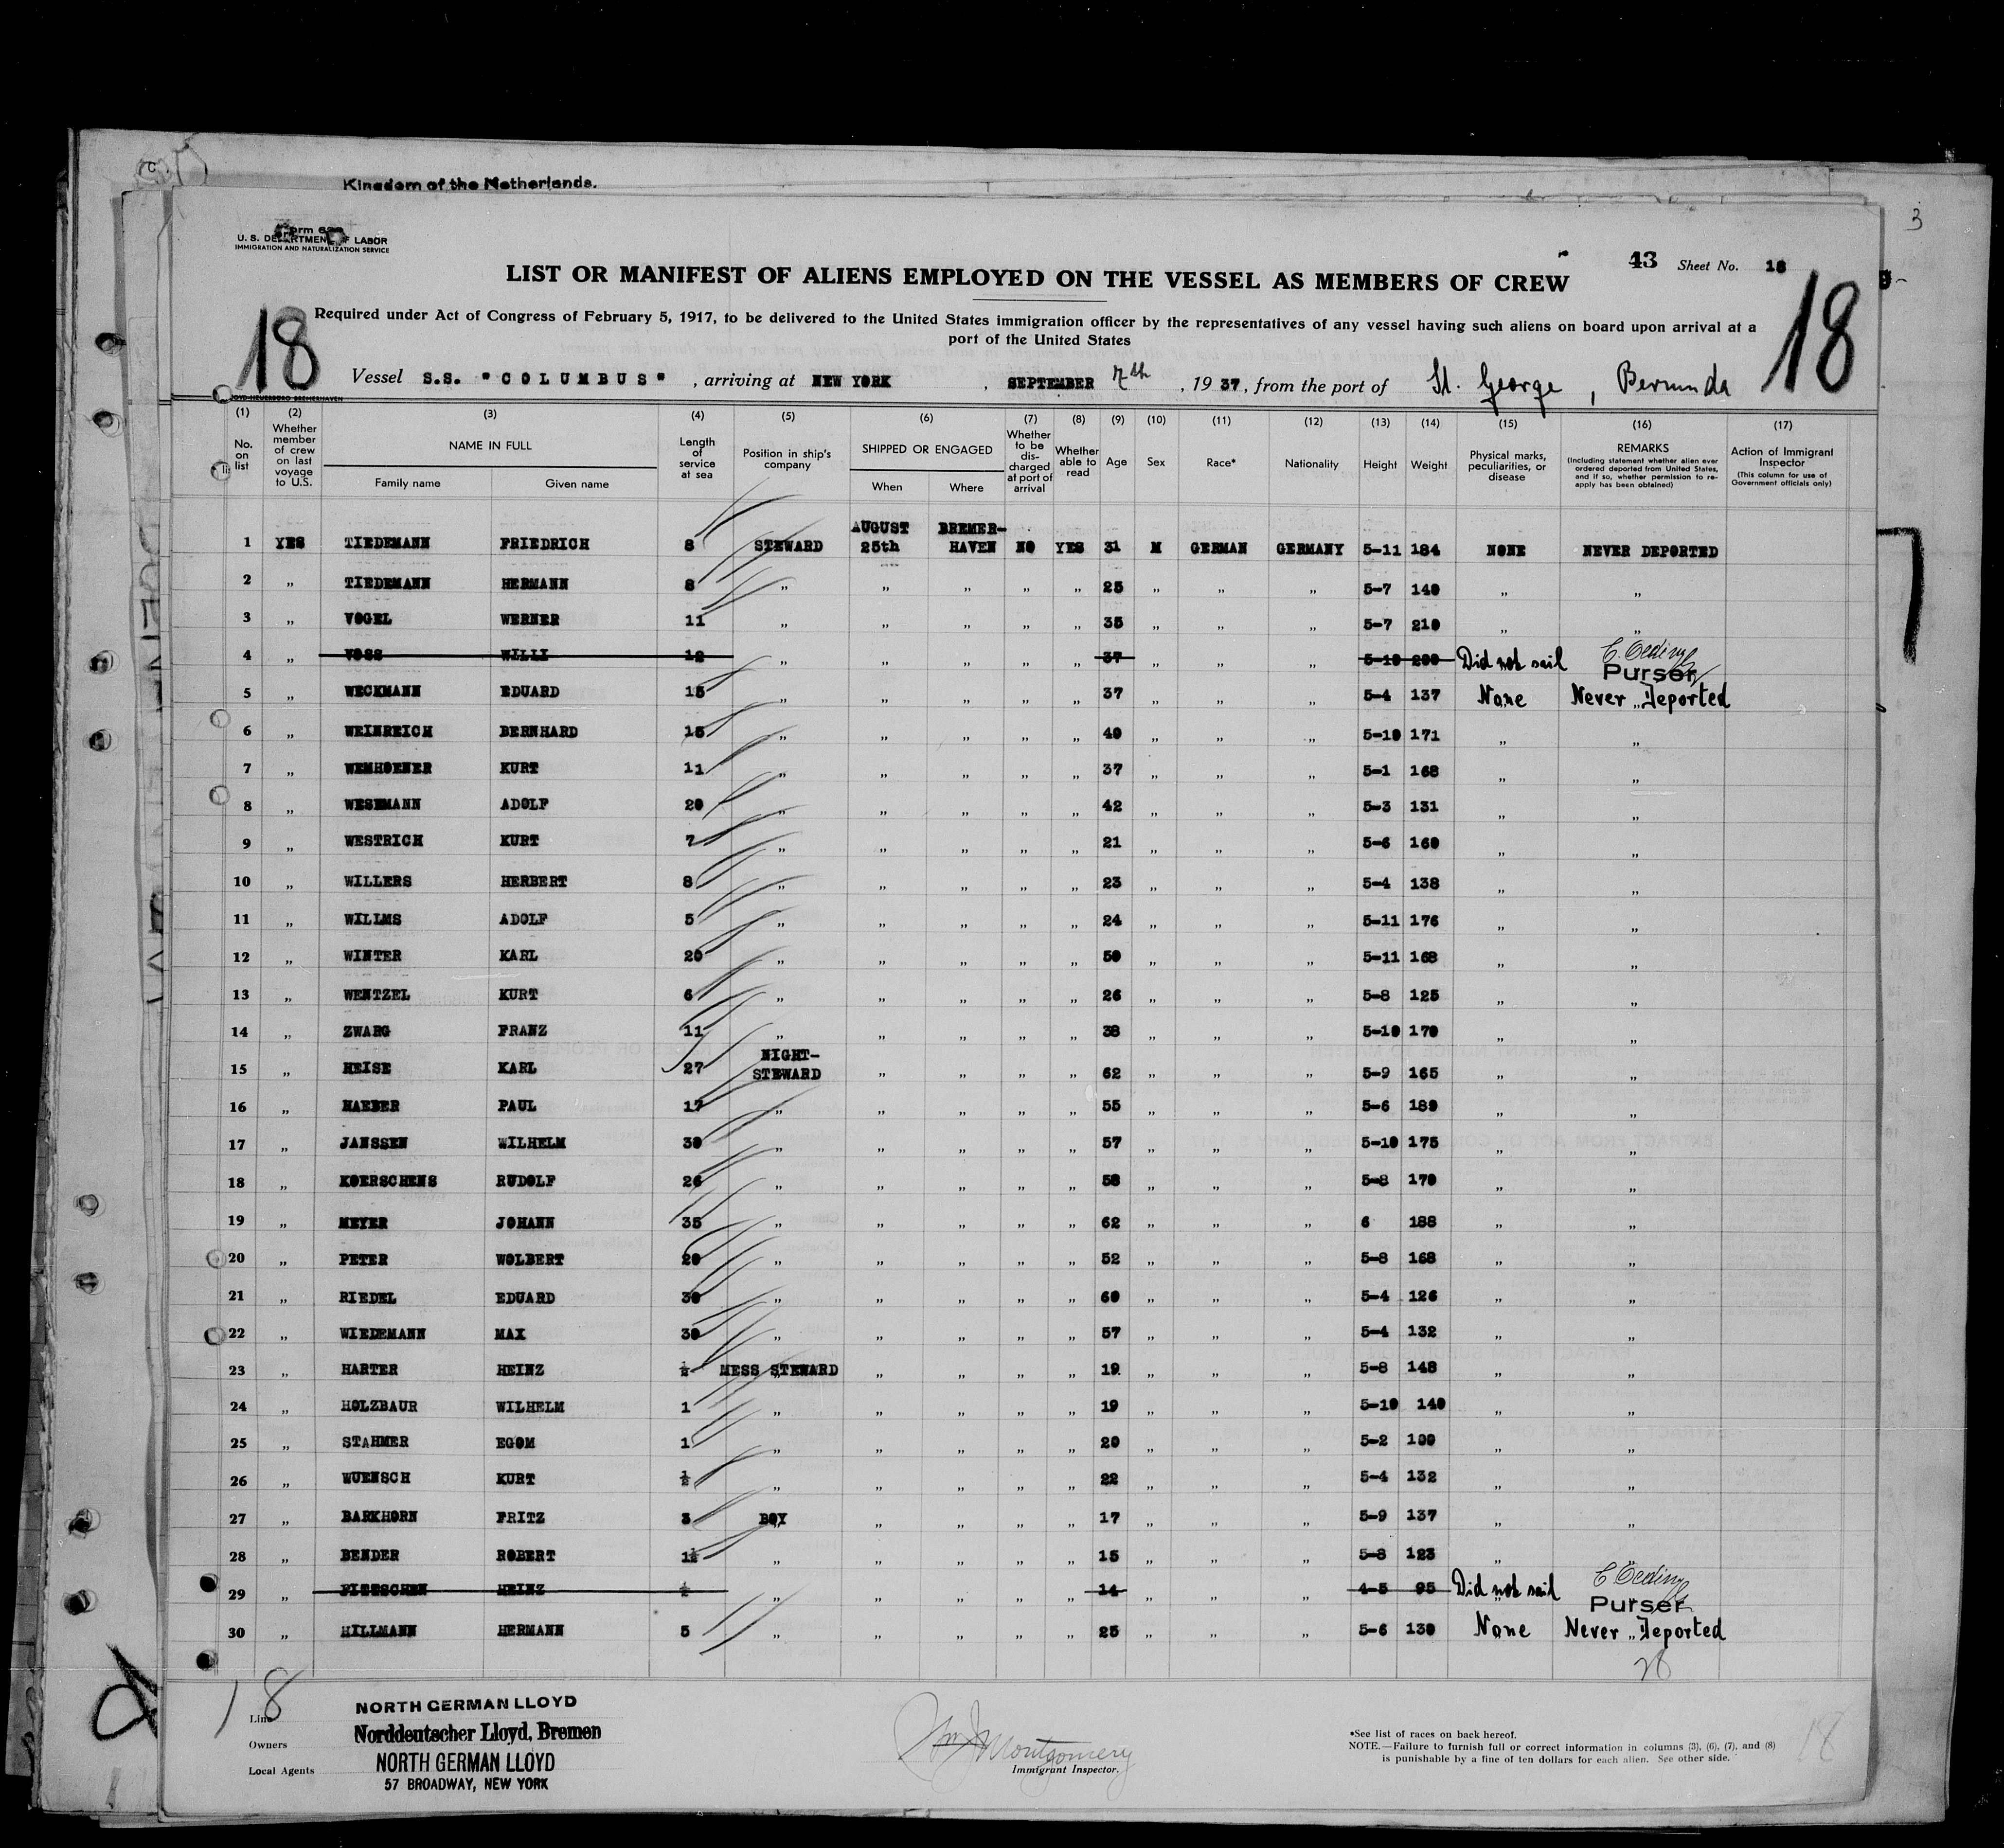 Kingdom of the Netherlands.
3
U. S. DEPARTMENT OF LABOR
IMMIGRATION AND NATURALIZATION SERVICE
43 Sheet No. 18
LIST OR MANIFEST OF ALIENS EMPLOYED ON THE VESSEL AS MEMBERS OF CREW
18 18
Required under Act of Congress of February 5, 1917, to be delivered to the United States immigration officer by the representatives of any vessel having such aliens on board upon arrival at a
port of the United States
Vessel S.S. "COLUMBUS", arriving at NEW YORK, SEPTEMBER 7th, 1937, from the port of St. George, Bermuda
(1) (2) (3) (4) (5) (6) (7) (8) (9) (10) (11) (12) (13) (14) (15) (16) (17)
No. on list
Whether member of crew on last voyage to U.S.
NAME IN FULL
Family name Given name
Length of service at sea
Position in ship's company
SHIPPED OR ENGAGED
When Where
Whether to be discharged at port of arrival
Whether able to read
Age Sex Race* Nationality Height Weight
Physical marks, peculiarities, or disease
REMARKS
(Including statement whether alien ever ordered deported from United States, and if so, whether permission to reapply has been obtained)
Action of Immigrant Inspector
(This column for use of Government officials only)
1 YES TIEDEMANN FRIEDRICH 8 STEWARD AUGUST 25th BREMER-HAVEN NO YES 31 M GERMAN GERMANY 5-11 184 NONE NEVER DEPORTED
2 " TIEDEMANN HERMANN 8 " " " " " 25 " " " 5-7 140 " "
3 " VOGEL WERNER 11 " " " " " 35 " " " 5-7 210 " "
4 " VOSS WILLI 12 " " " " " 37 " " " 5-10 200 Did not sail Purser
5 " WECKMANN EDUARD 15 " " " " " 37 " " " 5-4 137 None Never Deported
6 " WEINREICH BERNHARD 15 " " " " " 40 " " " 5-10 171 " "
7 " WEMHOENER KURT 11 " " " " " 37 " " " 5-1 168 " "
8 " WESEMANN ADOLF 20 " " " " " 42 " " " 5-3 131 " "
9 " WESTRICH KURT 7 " " " " " 21 " " " 5-6 160 " "
10 " WILLERS HERBERT 8 " " " " " 23 " " " 5-4 138 " "
11 " WILLMS ADOLF 5 " " " " " 24 " " " 5-11 176 " "
12 " WINTER KARL 20 " " " " " 50 " " " 5-11 168 " "
13 " WENTZEL KURT 6 " " " " " 26 " " " 5-8 125 " "
14 " ZWARG FRANZ 11 " " " " " 38 " " " 5-10 170 " "
15 " HEISE KARL 27 NIGHT-STEWARD " " " " 62 " " " 5-9 165 " "
16 " HAEBER PAUL 17 " " " " " 55 " " " 5-6 180 " "
17 " JANSSEN WILHELM 30 " " " " " 57 " " " 5-10 175 " "
18 " KOERSCHENS RUDOLF 26 " " " " " 58 " " " 5-8 170 " "
19 " MEYER JOHANN 35 " " " " " 62 " " " 6 188 " "
20 " PETER WOLBERT 20 " " " " " 52 " " " 5-8 168 " "
21 " RIEDEL EDUARD 30 " " " " " 60 " " " 5-4 126 " "
22 " WIEDEMANN MAX 30 " " " " " 57 " " " 5-4 132 " "
23 " HARTER HEINZ ½ MESS STEWARD " " " " 19 " " " 5-8 148 " "
24 " HOLZBAUR WILHELM 1 " " " " " 19 " " " 5-10 140 " "
25 " STAHMER EGOM 1 " " " " " 20 " " " 5-2 100 " "
26 " WUENSCH KURT ½ " " " " " 22 " " " 5-4 132 " "
27 " BARKHORN FRITZ 3 BOY " " " " 17 " " " 5-9 137 " "
28 " BENDER ROBERT 1½ " " " " " 15 " " " 5-8 123 " "
29 " HEINZ ½ " " " " " 14 " " " 4-5 95 Did not sail Purser
30 " HILLMANN HERMANN 5 " " " " " 25 " " " 5-6 130 None Never Deported
28
18
Line NORTH GERMAN LLOYD
Owners Norddeutscher Lloyd, Bremen
Local Agents NORTH GERMAN LLOYD
57 BROADWAY, NEW YORK
Montgomery
Immigrant Inspector.
*See list of races on back hereof.
NOTE.—Failure to furnish full or correct information in columns (3), (6), (7), and (8)
is punishable by a fine of ten dollars for each alien. See other side.
18